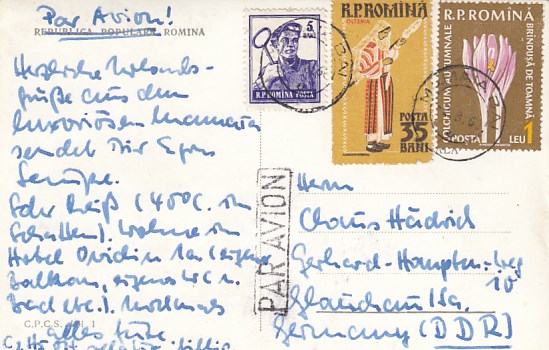 Par Avion!
REPUBLICA POPULARA ROMINA
Herzliche Urlaubs-
grüße aus dem
luxuriösen Mamaia
sendet Dir Egon
Sehr heiß (40°C im
Schatten). Wohne im
Hotel Ovidiu 1a (eigener
Balkon, eigenes WC u.
Bad etc.). Nochmals
alles Gute
C.P.C.S.
5
BANI
R.P.ROMINA POSTA
R.P.ROMINA
OLTENIA
POSTA
35
BANI
R.P.ROMINA
COLCHICUM AUTUMNALE
BRINDUSA DE TOAMNA
POSTA
LEU 1
PAR AVION
Herrn
Claus Hädrich
Gerhard-Hauptm.-Weg
10
Glauchau/Sa.
Germany (DDR)